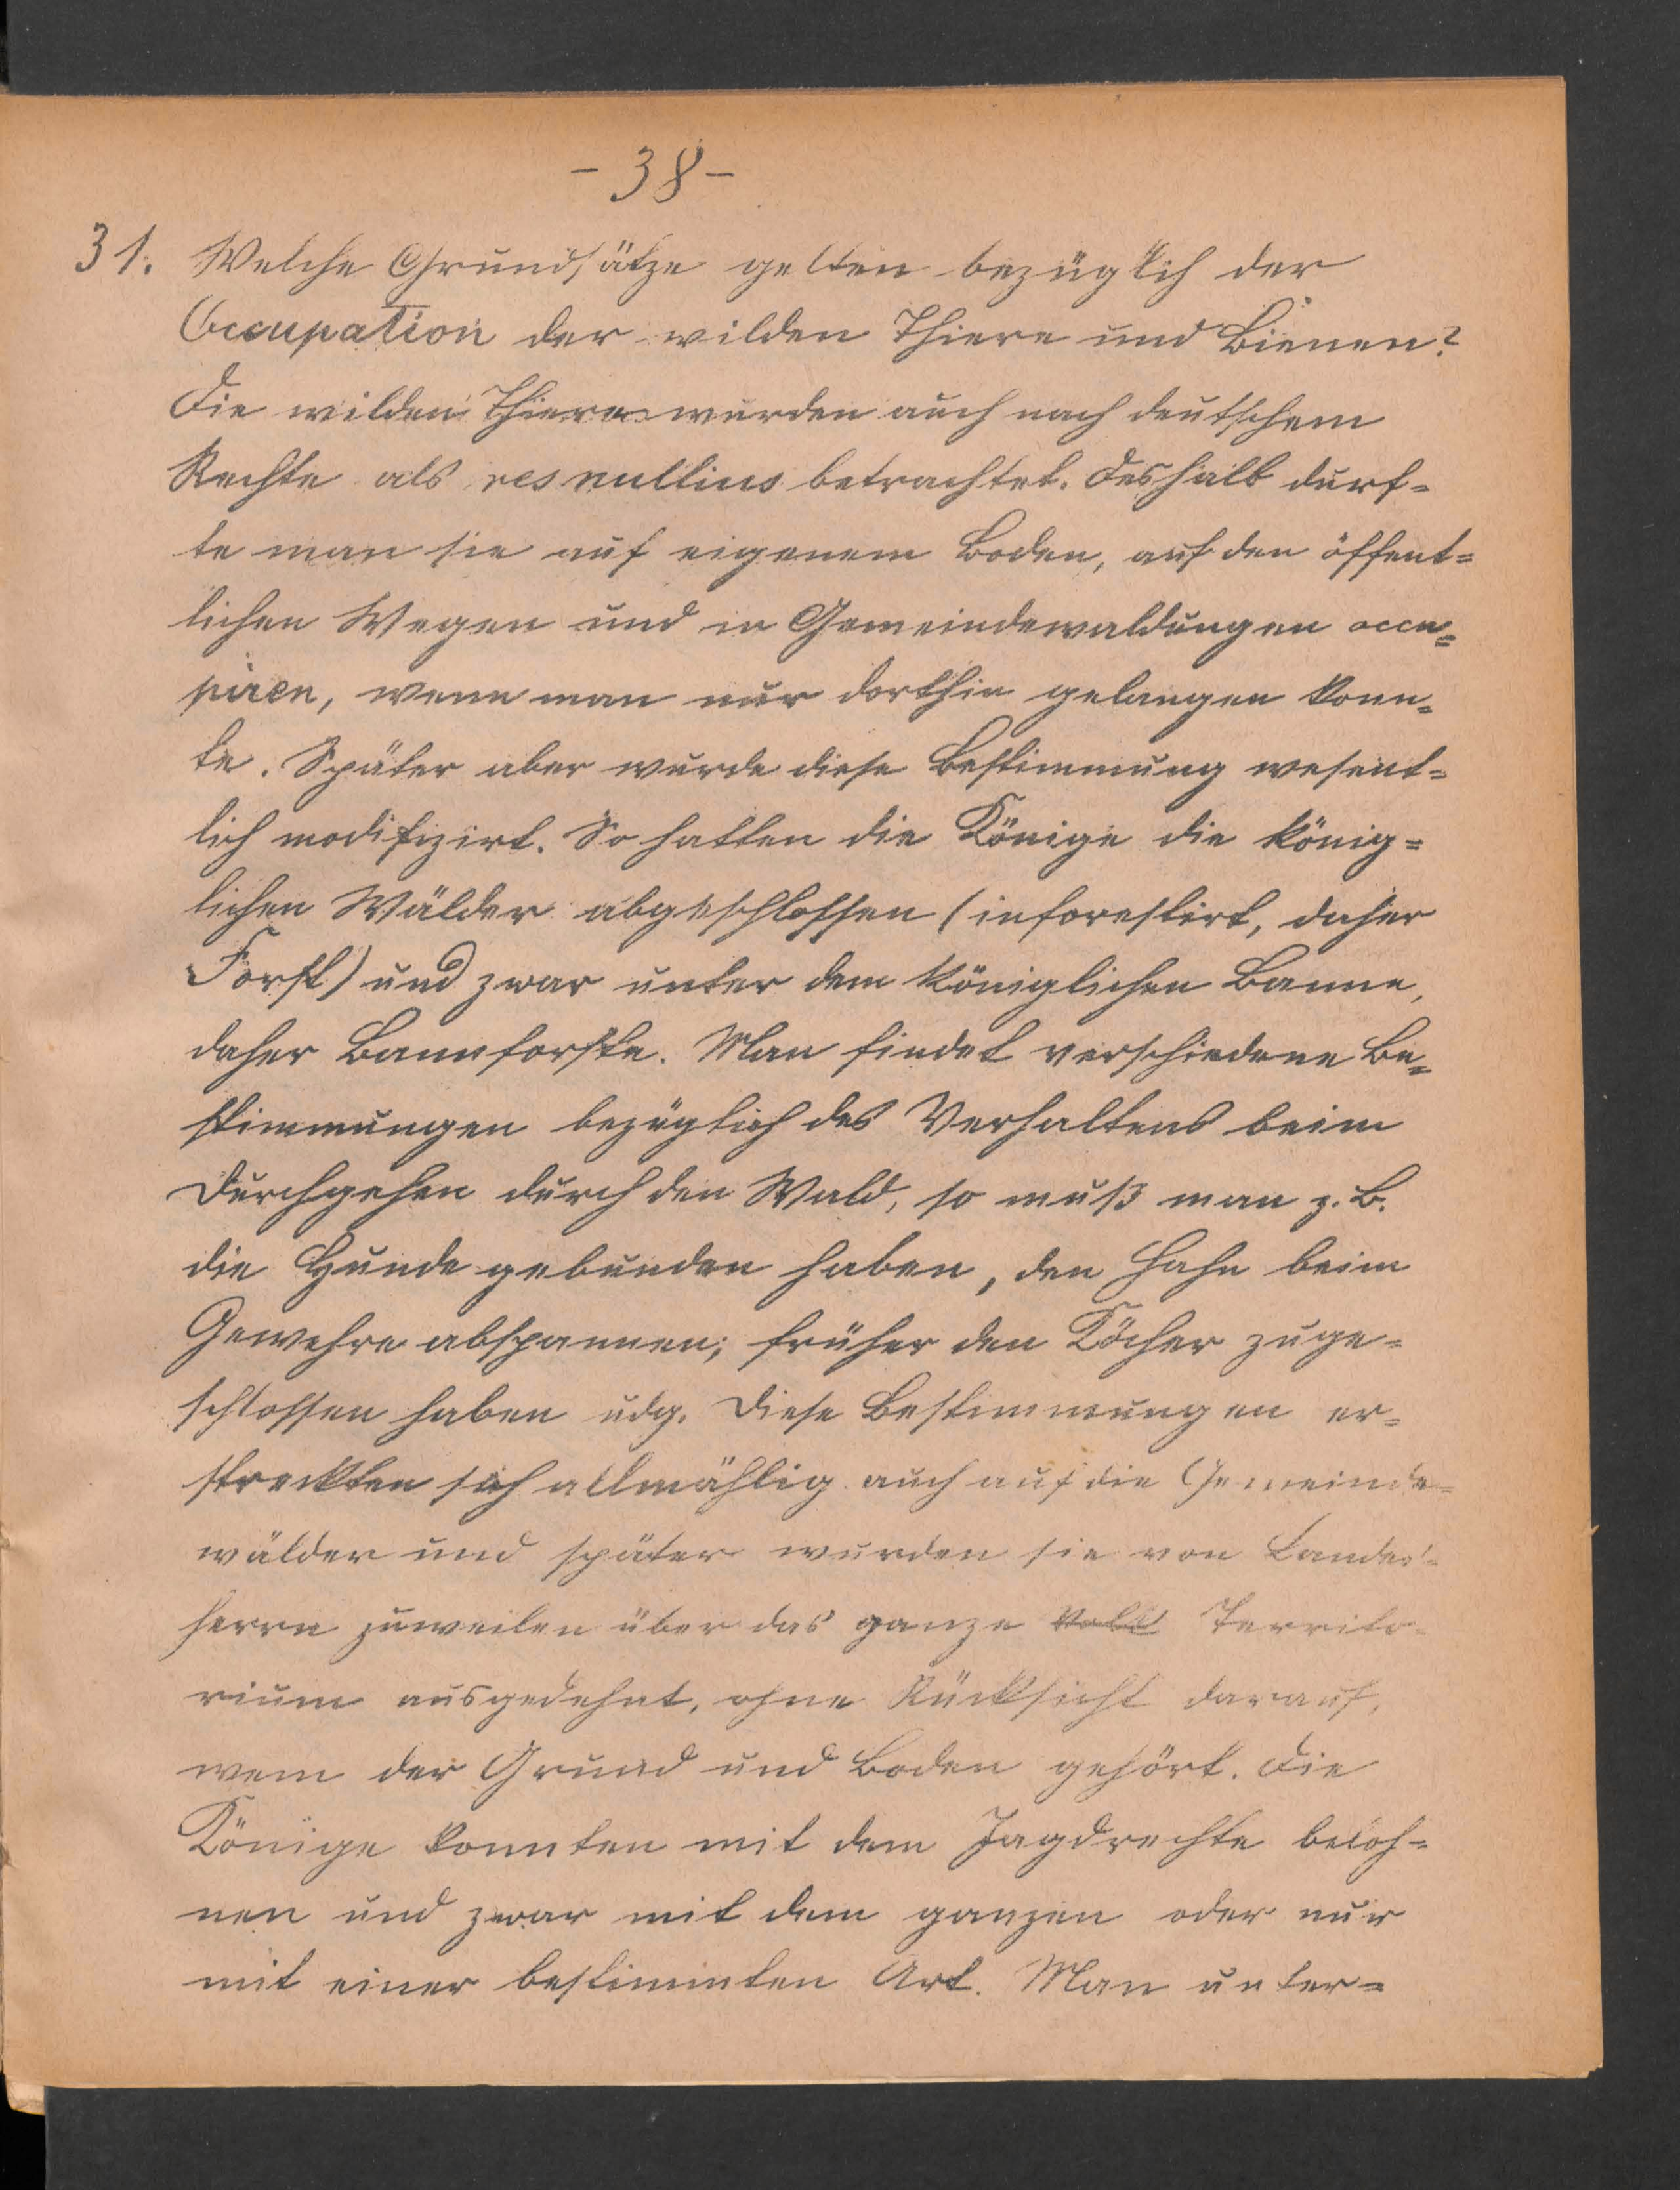 - 38 -
31. Welche Grundsätze gelten bezüglich der
Occupation der wilden Thiere und Bienen?
Die wilden Thiere wurden auch nach deutschem
Rechte als res nullius betrachtet. Deshalb durf=
te man sie auf eigenem Boden, auf den öffent=
lichen Wegen und in Gemeindewaldungen occu=
piren, wenn man nur dorthin gelangen konn=
te. Später aber wurde diese Bestimmung wesent=
lich modifizirt. So hatten die Könige die könig=
lichen Wälder abgeschlossen (inforestirt, daher
Forst) und zwar unter dem königlichen Banne,
daher Bannforste. Man findet verschiedene Be=
stimmungen bezüglich des Verhaltens beim
Durchgehen durch den Wald, so muß man z. B.
die Hunde gebunden haben, den Hahn beim
Gewehre abspannen; früher den Köcher zuge=
schlossen haben udg. Diese Bestimmungen er=
streckten sich allmählig auch auf die Gemeinde=
wälder und später wurden sie von Landes=
herrn zuweilen über das ganze Volk Territo=
rium ausgedehnt, ohne Rücksicht darauf,
wem der Grund und Boden gehört. Die
Könige konnten mit dem Jagdrechte beloh=
nen und zwar mit dem ganzen oder nur
mit einer bestimmten Art. Man unter=